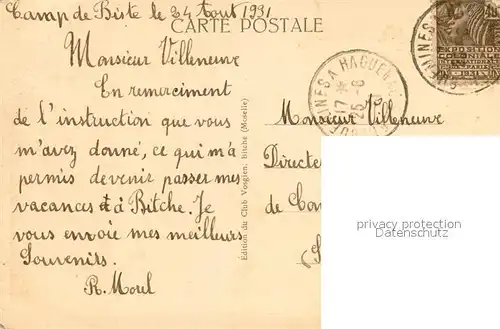 Camp de Biste le 24 Aout 1931
CARTE POSTALE
Monsieur Villeneuve
En remerciment
de l'instruction que vous
m'avez donné, ce qui m'a
permis devenir passer mes
vacances à Bitche. Je
vous envoie mes meilleurs
Souvenirs.
R. Morel
Édition du Club Vosgien, Bitche (Moselle)
17 * 25-8
EXPOSITION
COLONIALE
INTERNATIONALE
PARIS
1931
Monsieur Villeneuve
Directe
de Con
privacy protection
Datenschutz